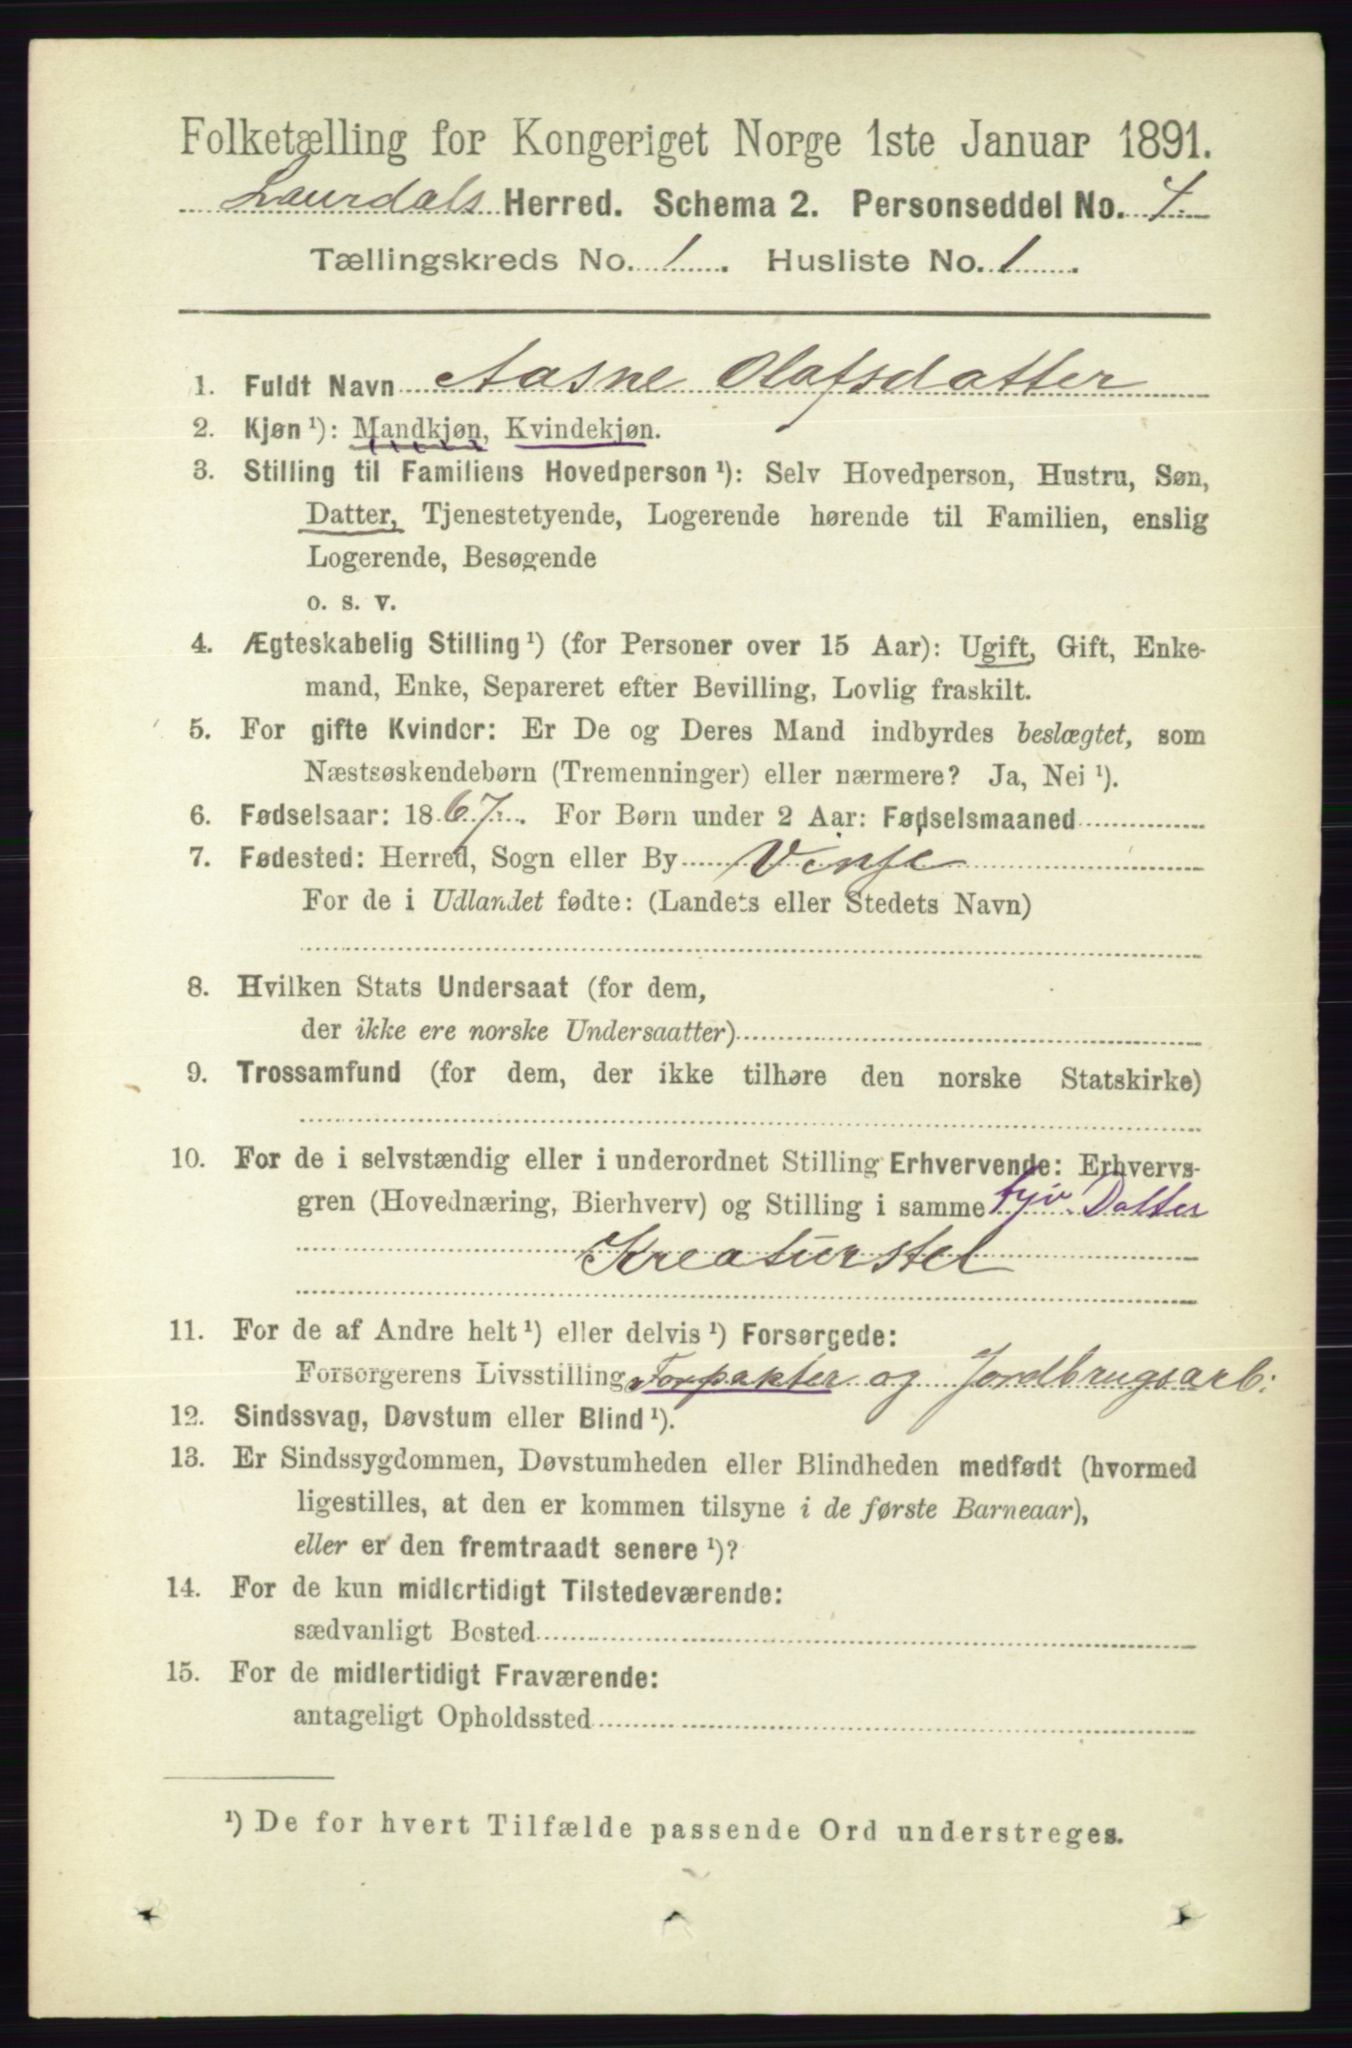 Folketælling for Kongeriget Norge 1ste Januar 1891.
Laurdals Herred. Schema 2. Personseddel No. 4.
Tællingskreds No. 1. Husliste No. 1.
1. Fuldt Navn Aasne Olafsdatter
2. Kjøn ¹): Mandkjøn, Kvindekjøn.
3. Stilling til Familiens Hovedperson ¹): Selv Hovedperson, Hustru, Søn,
Datter, Tjenestetyende, Logerende hørende til Familien, enslig
Logerende, Besøgende
o. s. v.
4. Ægteskabelig Stilling ¹) (for Personer over 15 Aar): Ugift, Gift, Enke-
mand, Enke, Separeret efter Bevilling, Lovlig fraskilt.
5. For gifte Kvinder: Er De og Deres Mand indbyrdes beslægtet, som
Næstsøskendebørn (Tremenninger) eller nærmere? Ja, Nei ¹).
6. Fødselsaar: 1867. For Børn under 2 Aar: Fødselsmaaned
7. Fødested: Herred, Sogn eller By Vinje
For de i Udlandet fødte: (Landets eller Stedets Navn)
8. Hvilken Stats Undersaat (for dem,
der ikke ere norske Undersaatter)
9. Trossamfund (for dem, der ikke tilhøre den norske Statskirke)
10. For de i selvstændig eller i underordnet Stilling Erhvervende: Erhvervs-
gren (Hovednæring, Bierhverv) og Stilling i samme hjv. Datter
Kreaturstel
11. For de af Andre helt ¹) eller delvis ¹) Forsørgede:
Forsørgerens Livsstilling Forpakter og Jordbrugsarb:
12. Sindssvag, Døvstum eller Blind ¹).
13. Er Sindssygdommen, Døvstumheden eller Blindheden medfødt (hvormed
ligestilles, at den er kommen tilsyne i de første Barneaar),
eller er den fremtraadt senere ¹)?
14. For de kun midlertidigt Tilstedeværende:
sædvanligt Bosted
15. For de midlertidigt Fraværende:
antageligt Opholdssted
¹) De for hvert Tilfælde passende Ord understreges.